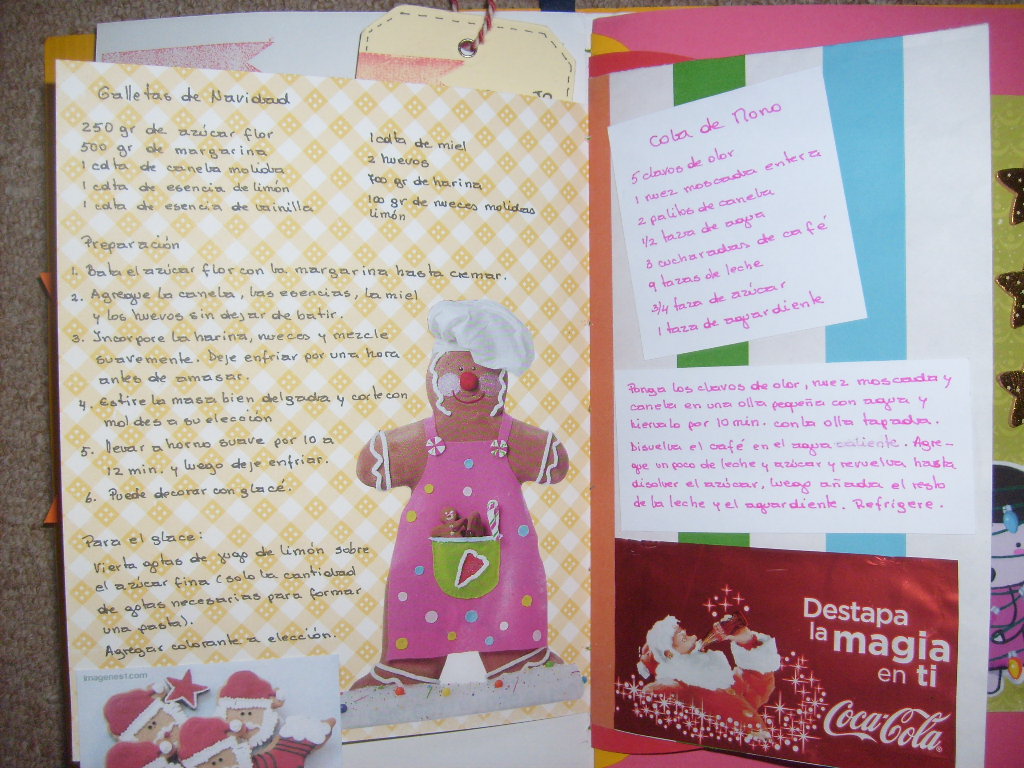 TO
Galletas de Navidad
250 gr de azúcar flor
500 gr de margarina
1 cdta de canela molida
1 cdta de esencia de limón
1 cdta de esencia de vainilla
1 cdta de miel
2 huevos
700 gr de harina
100 gr de nueces molidas
limón
Preparación
1. Bata el azúcar flor con la margarina hasta cremar.
2. Agregue la canela, las esencias, la miel
y los huevos sin dejar de batir.
3. Incorpore la harina, nueces y mezcle
suavemente. Deje enfriar por una hora
antes de amasar.
4. Estire la masa bien delgada y corte con
moldes a su elección
5. Llevar a horno suave por 10 a
12 min. y luego deje enfriar.
6. Puede decorar con glacé.
Para el glace:
Vierta gotas de jugo de limón sobre
el azúcar fina (solo la cantidad
de gotas necesarias para formar
una pasta).
Agregar colorante a elección.
imagenes1.com
Cola de Mono
5 clavos de olor
1 nuez moscada entera
2 palitos de canela
1/2 taza de agua
3 cucharadas de café
9 tazas de leche
3/4 taza de azúcar
1 taza de aguardiente
Ponga los clavos de olor, nuez moscada y
canela en una olla pequeña con agua y
hiervalo por 10 min. con la olla tapada.
Disuelva el café en el agua caliente. Agre-
que un poco de leche y azúcar y revuelva hasta
disolver el azúcar, luego añada el resto
de la leche y el aguardiente. Refrigere.
Destapa
la magia
en ti
Coca-Cola